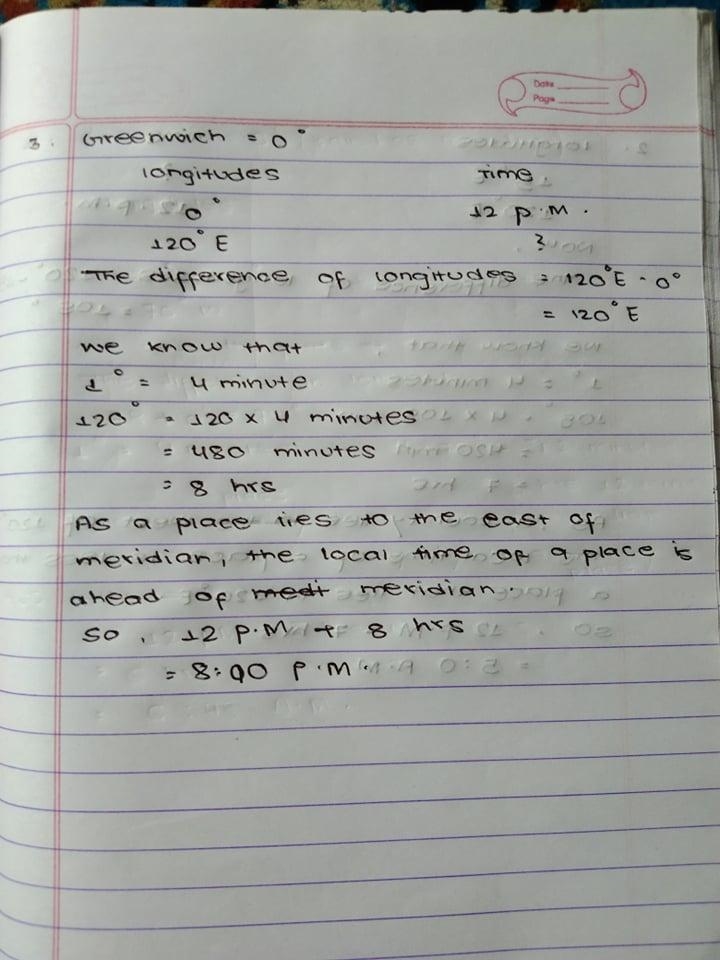 Date
Page
3. Greenwich = 0°
longitudes Time.
0° 12 p.m.
120° E ?
The difference of longitudes = 120°E - 0°
= 120° E
we know that
1° = 4 minute
120° = 120 x 4 minutes
= 480 minutes
= 8 hrs
As a place lies to the east of
meridian, the local time of a place is
ahead of medi meridian.
So, 12 P.M + 8 hrs
= 8:00 P.M.